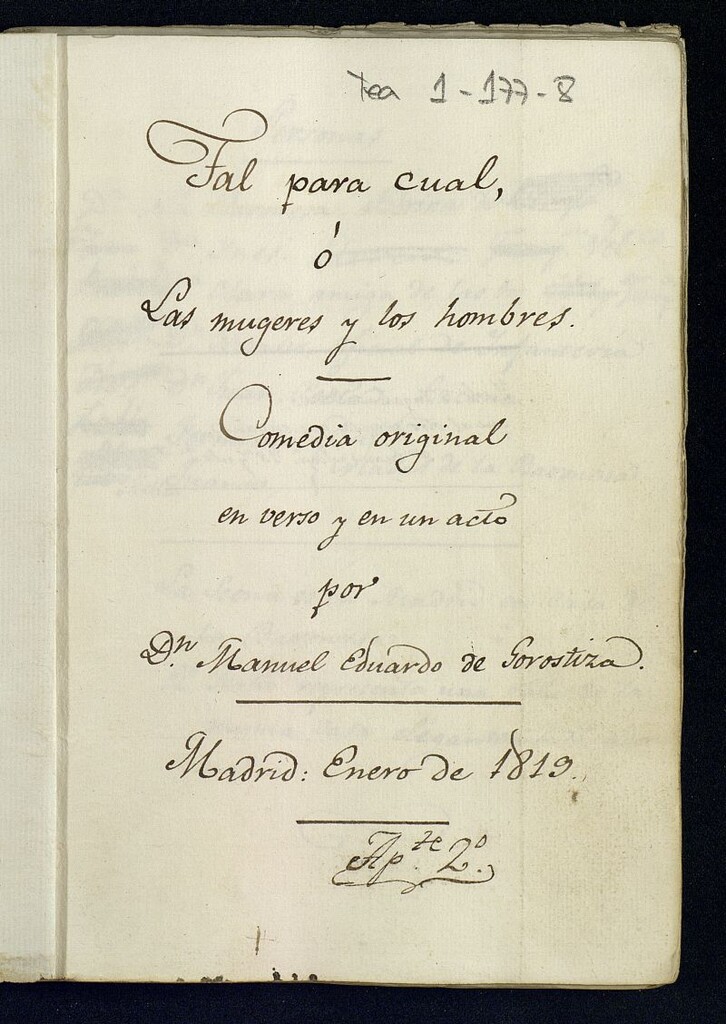 Tea 1-177-8
Tal para cual,
ó
Las mugeres y los hombres.
Comedia original
en verso y en un acto
por
Dn. Manuel Eduardo de Gorostiza.
Madrid: Enero de 1819.
Ap.te 2.º